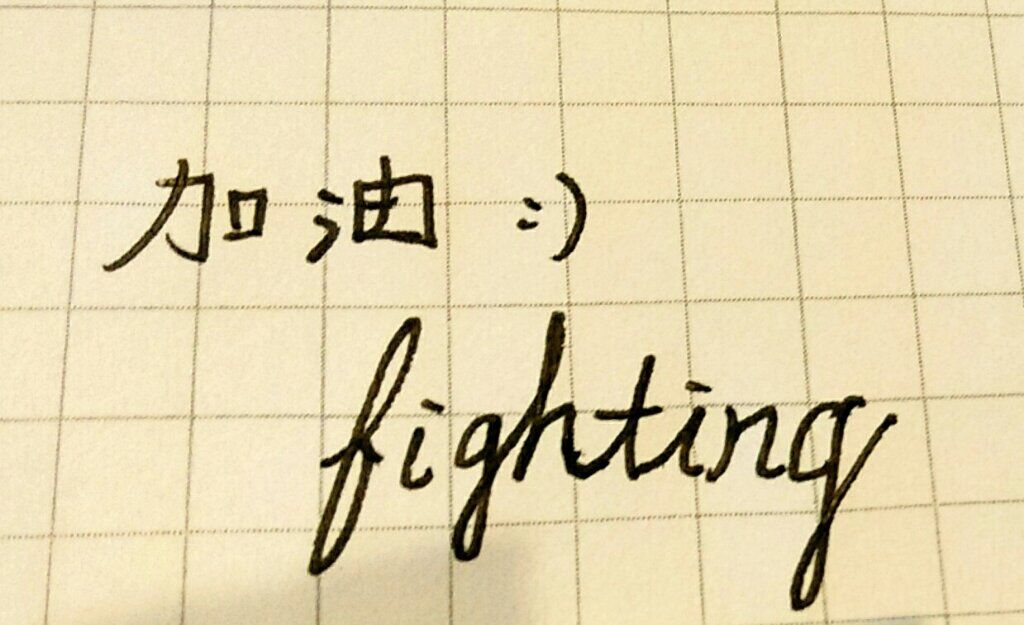 加油 :)
fighting